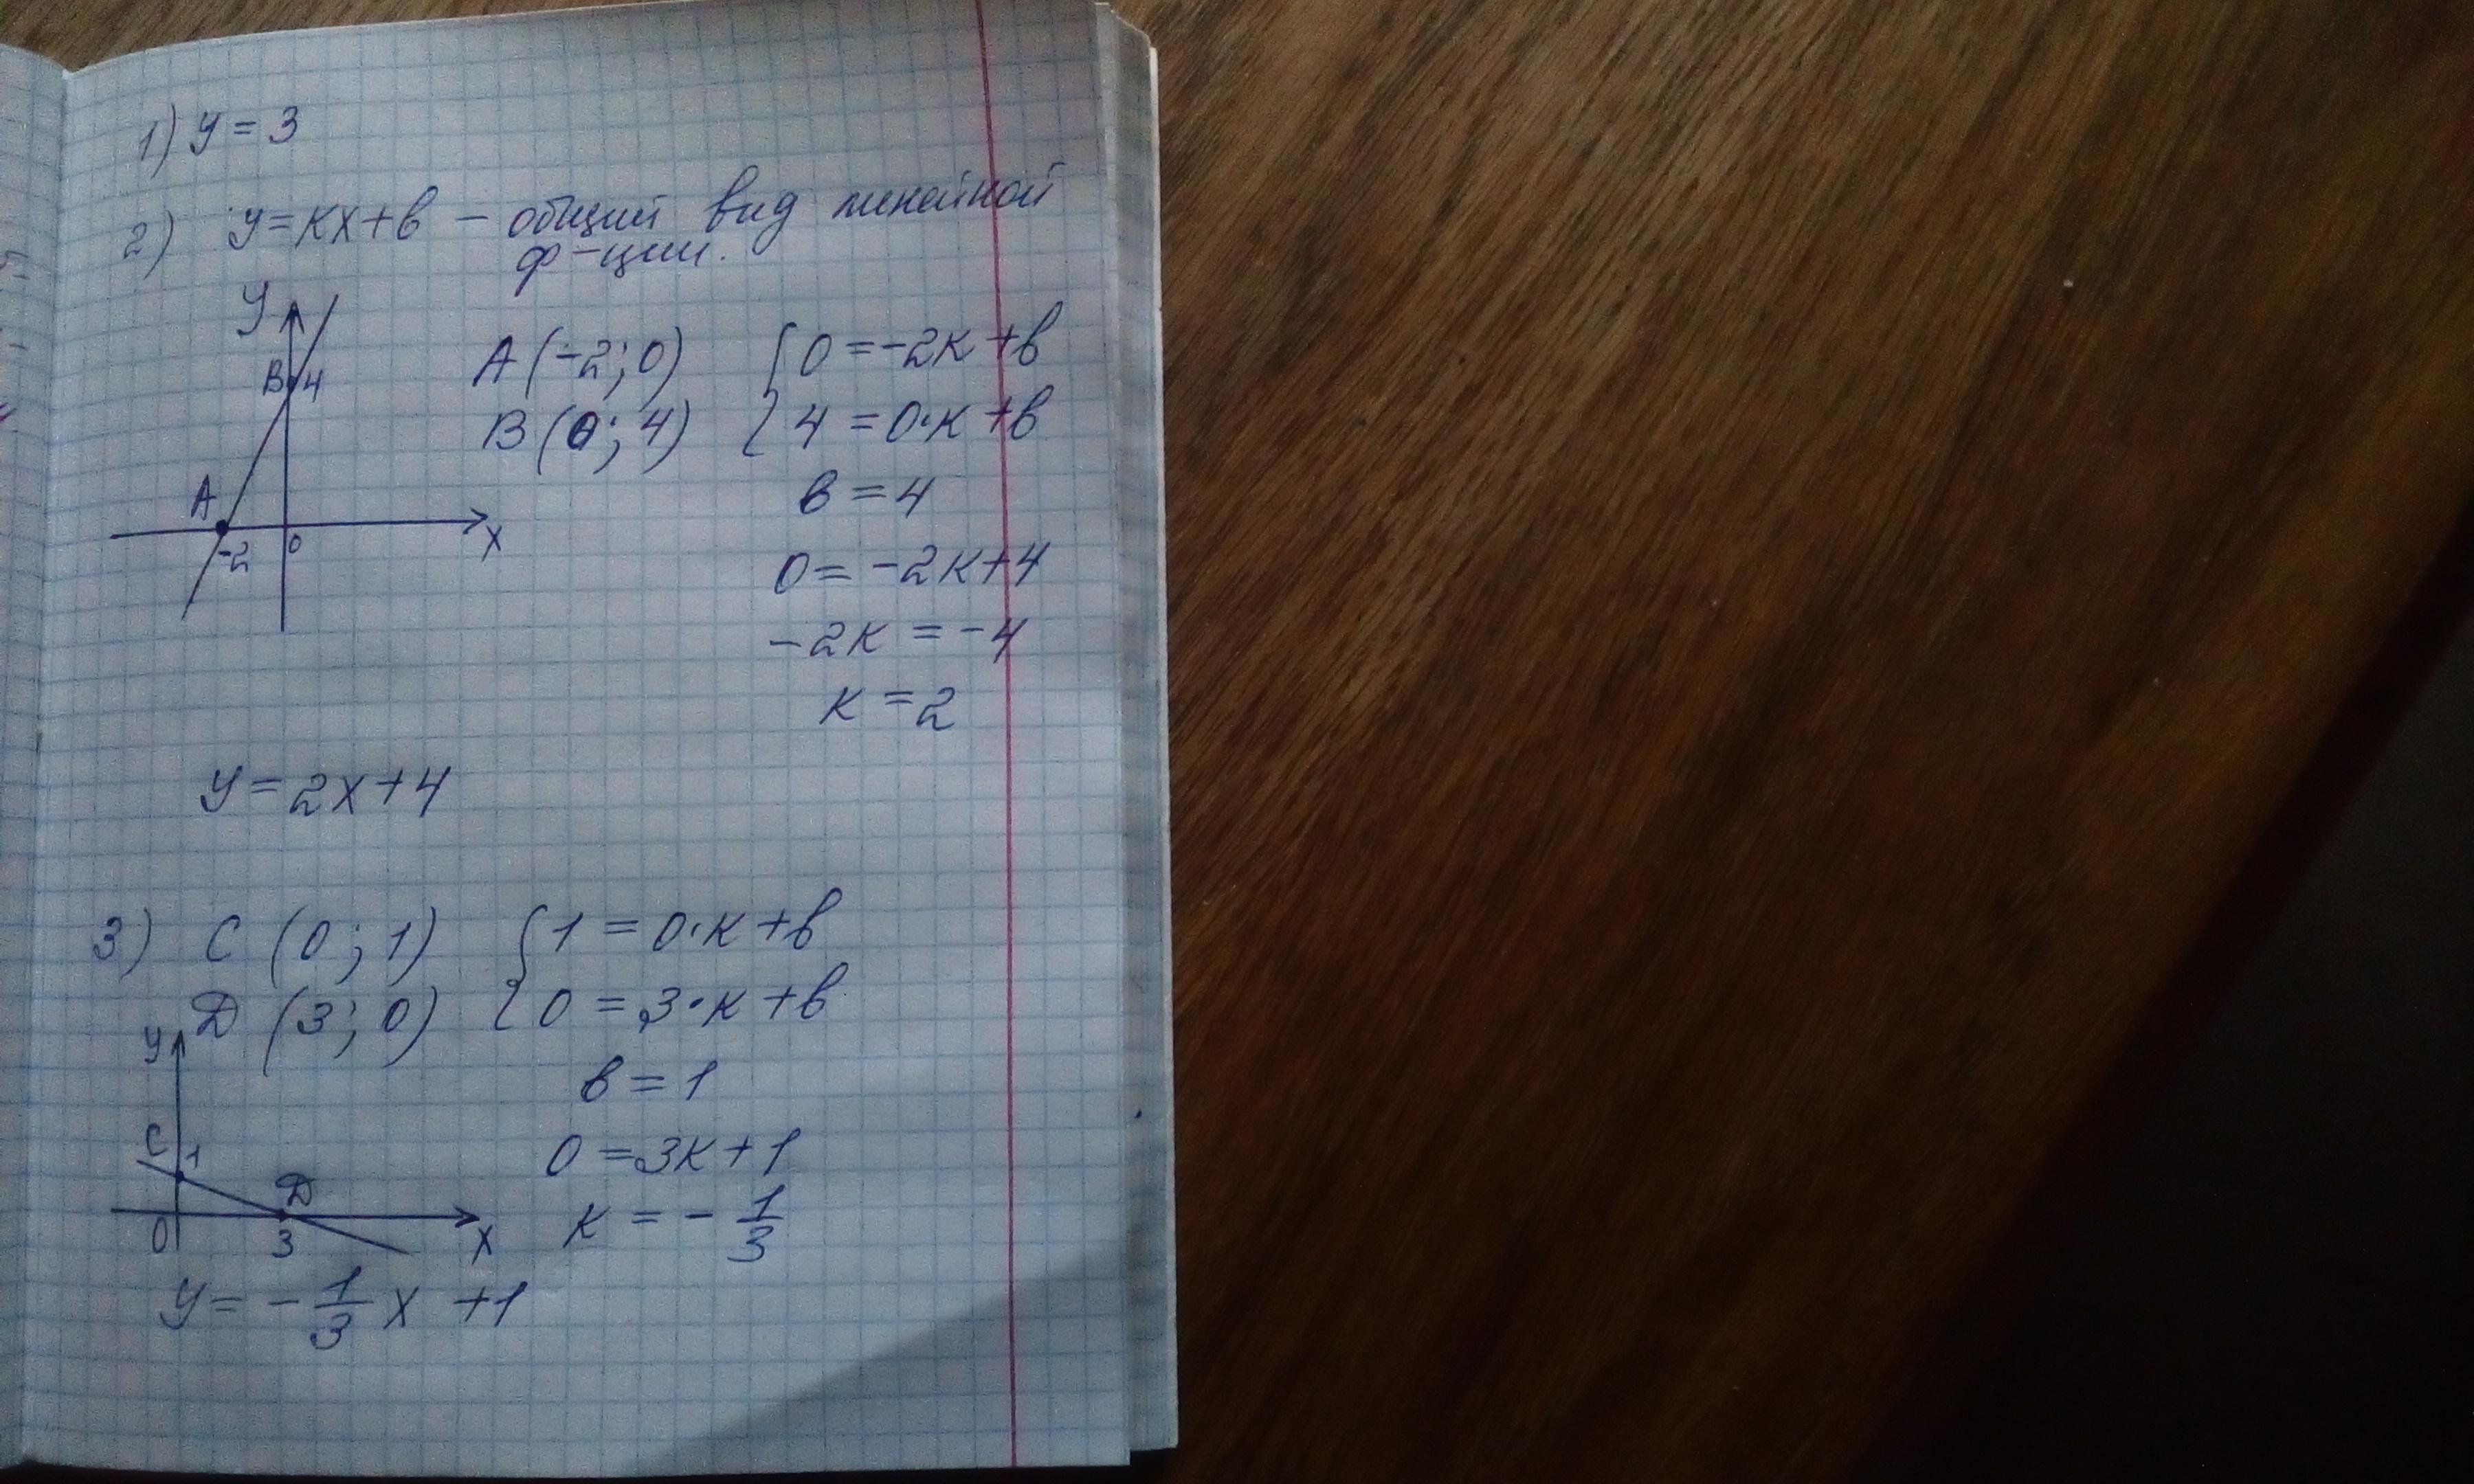 1) y = 3
2) y = kx + b – общий вид линейной
ф-ции.
y
B 4
A
-2 0 x
A (-2; 0)
B (0; 4)
{ 0 = -2k + b
4 = 0·k + b
b = 4
0 = -2k + 4
-2k = -4
k = 2
y = 2x + 4
3) C (0; 1)
D (3; 0)
{ 1 = 0·k + b
0 = 3·k + b
b = 1
0 = 3k + 1
k = - 1/3
y
C 1
D
0 3 x
y = - 1/3 x + 1